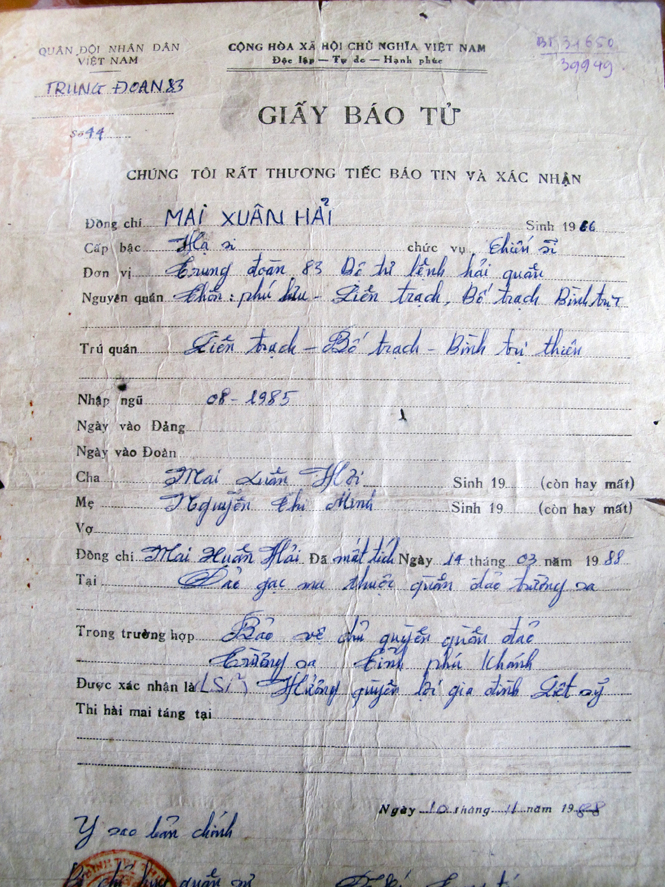 QUÂN ĐỘI NHÂN DÂN
VIỆT NAM
TRUNG ĐOAN 83
Số 44
CỘNG HÒA XÃ HỘI CHỦ NGHĨA VIỆT NAM
Độc lập — Tự do — Hạnh phúc
BT 31650
39949
GIẤY BÁO TỬ
CHÚNG TÔI RẤT THƯƠNG TIẾC BÁO TIN VÀ XÁC NHẬN
Đồng chí MAI XUÂN HẢI Sinh 1966
Cấp bậc Hạ sĩ chức vụ chiến sĩ
Đơn vị Trung đoàn 83 Bộ tư lệnh hải quân
Nguyên quán Thôn: phú hữu - Liên trạch, Bố trạch Bình trị
Trú quán Liên trạch - Bố trạch - Bình trị thiên
Nhập ngũ 08-1985
Ngày vào Đảng
Ngày vào Đoàn
Cha Mai Xuân Hới Sinh 19 (còn hay mất)
Mẹ Nguyễn Thị Minh Sinh 19 (còn hay mất)
Vợ
Đồng chí Mai Xuân Hải Đã mất tích Ngày 14 tháng 03 năm 1988
Tại Đảo gạc ma thuộc quần đảo trường sa
Trong trường hợp Bảo vệ chủ quyền quần đảo
Trường sa tỉnh phú Khánh
Được xác nhận là (LSĩ) Hưởng quyền lợi gia đình Liệt sỹ
Thi hài mai táng tại
Ngày 10 tháng 11 năm 1988
Y sao bản chính